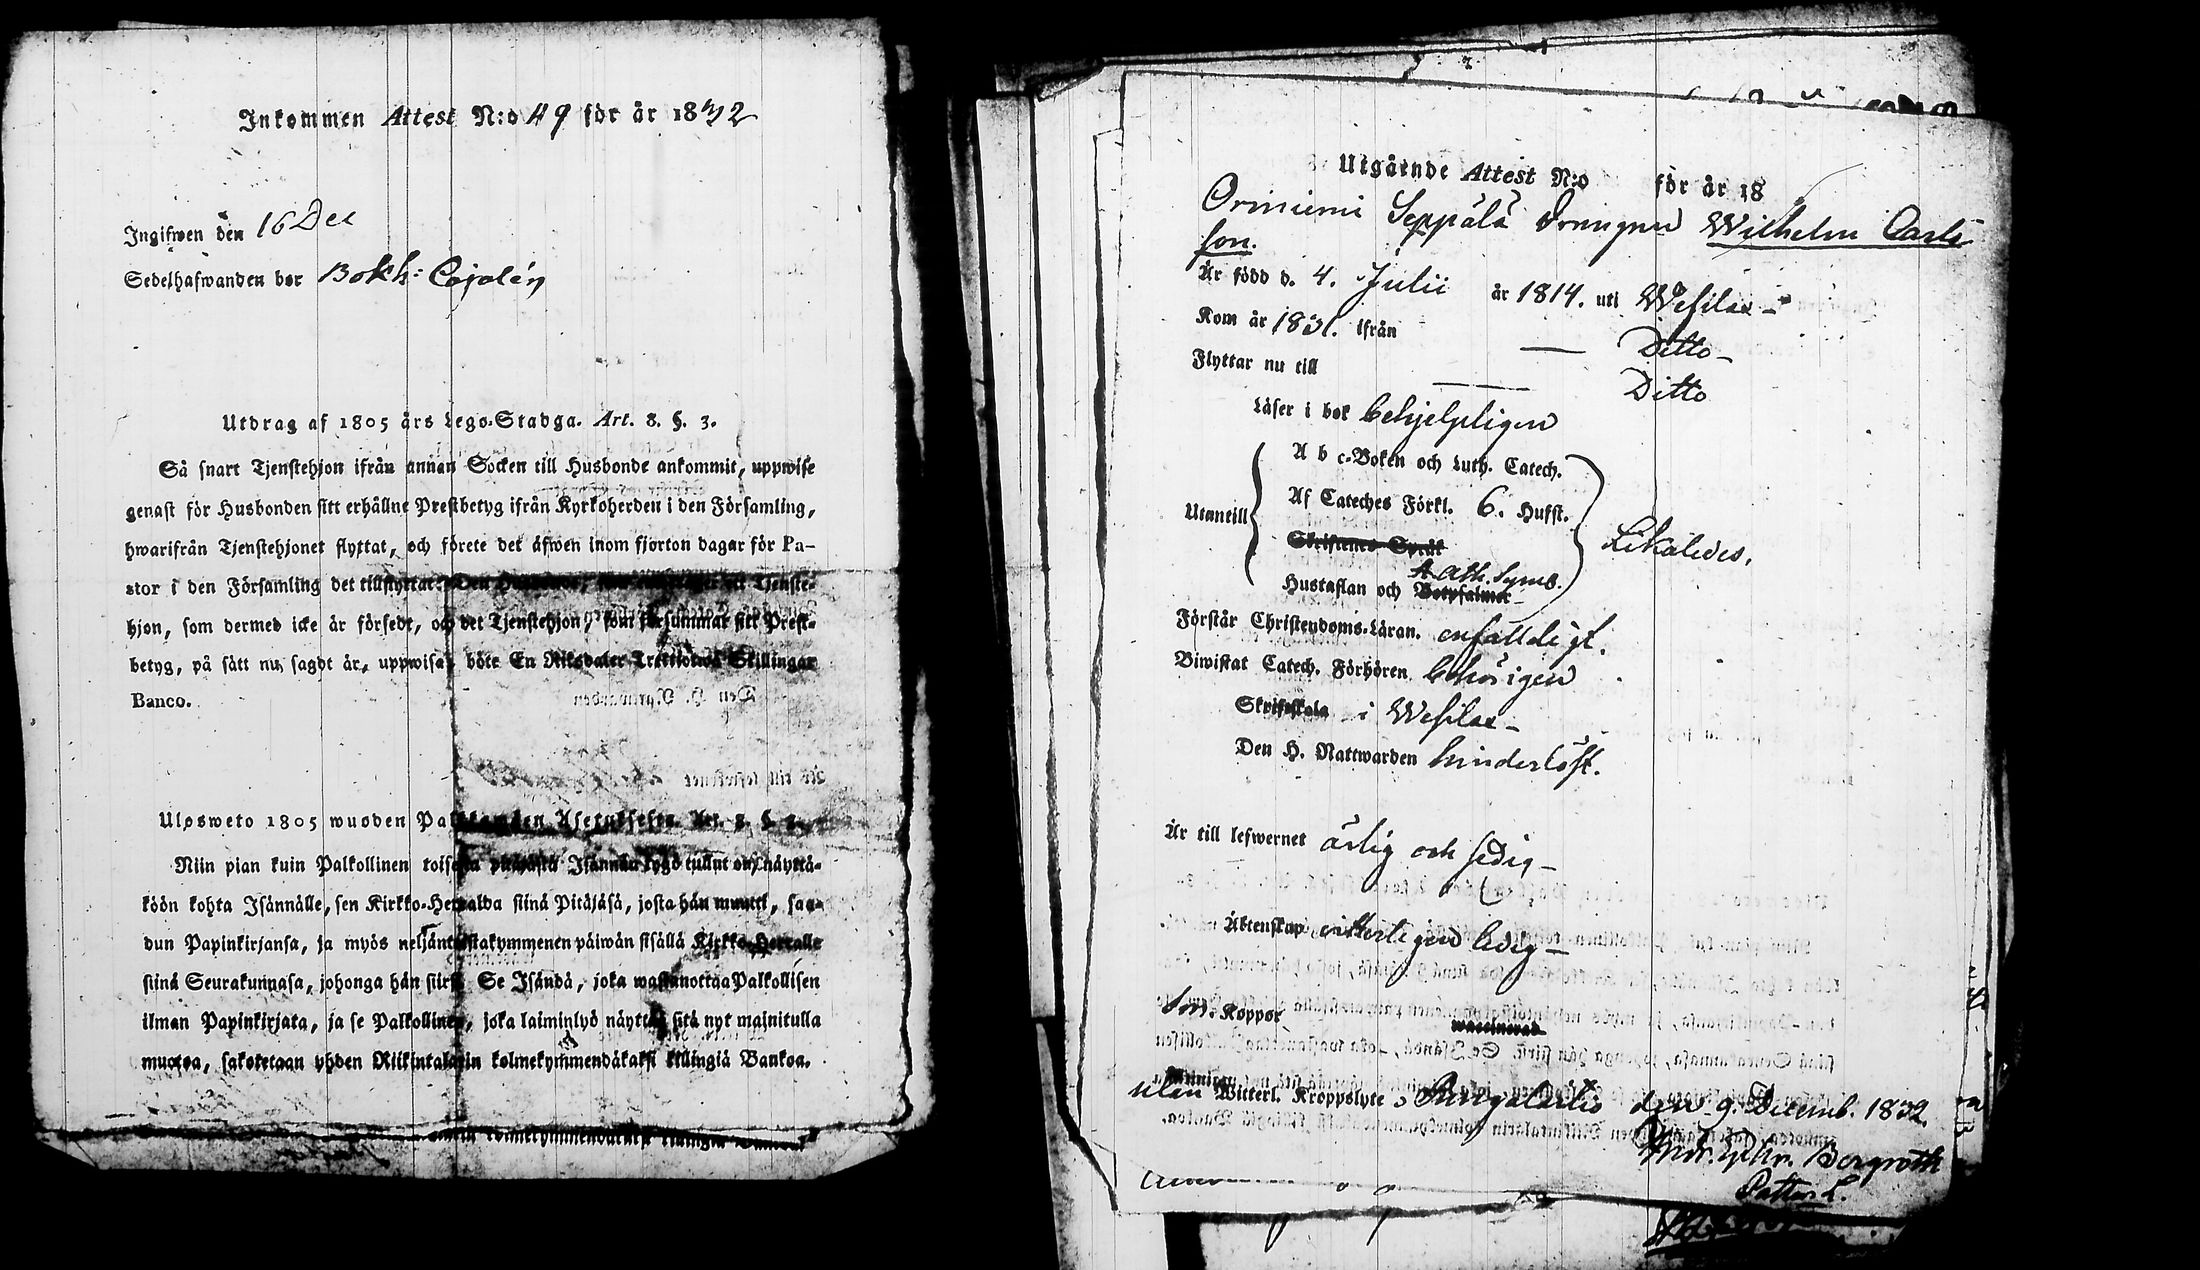 Inkommen Attest N:o 49 för år 1832
Ingifwen den 16 Dec
Sedelhafwanden bor Bokh: Cajalén
Utdrag af 1805 års Lego-Stadga. Art. 8. §. 3.
Så snart Tjenstehjon ifrån annan Socken till Husbonde ankommit, uppwise
genast för Husbonden sitt erhållne Prestbetyg ifrån Kyrkoherden i den Församling,
hwarifrån Tjenstehjonet flyttat, och förete det äfwen inom fjorton dagar för Pa-
stor i den Församling det tillflyttat. Den Tjenste-
hjon, som dermed icke är försedt, och det Tjenstehjon, som försummar sitt Prest-
betyg, på sätt nu sagdt är, uppwisa, böte En Riksdaler Trettiotwå Skillingar
Banco.
Ulosweto 1805 wuoden Palkkawäen Asetuksesta. Art. 8. §. 3.
Niin pian kuin Palkollinen toisesta pitäjästä Isännän tygö tullut on, näyttä-
köön kohta Isännälle, sen Kirkko-Herralda siinä Pitäjäsä, josta hän muutti, saa-
dun Papinkirjansa, ja myös neljäntoistakymmenen päiwän sisällä Kirkko-Herralle
siinä Seurakunnasa, johonga hän siirsi. Se Isändä, joka wastanottaa Palkollisen
ilman Papinkirjata, ja se Palkollinen, joka laiminlyö näyttää sitä nyt mainitulla
muotoa, sakotetaan yhden Riikintalarin kolmekymmendäkaksi killingiä Bankoa.
Utgående Attest N:o för år 18
Orminiemi Seppälä Drängen Wilhelm Carls
son.
Är född d. 4. Julii år 1814. uti Wesilax
Kom år 1831. ifrån — Ditto
Flyttar nu till — Ditto
Läser i bok behjelpligen
A b c-Boken och Luth. Catech.
Af Cateches Förkl. 6. Hufst.
Utantill Likaledes.
Skriftenes Språk
Ath. Symb.
Hustaflan och Botpsalmer
Förstår Christendoms-Läran. enfalldigt.
Biwistat Catech. Förhören behörigen
Skriftskola i Wesilax
Den H. Nattwarden hinderlöst.
Är till lefwernet ärlig och sedig
Äktenskap witterligen ledig
Koppor waccinerad
utan Witterl. Kroppslyte, Pungalaitio den 9. Decemb. 1832.
Bergroth
Pastor L.